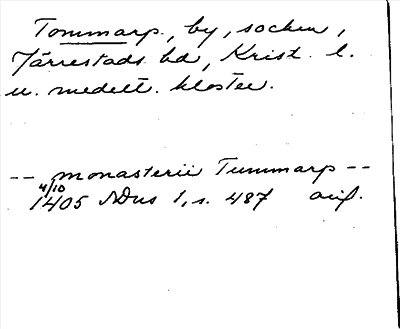 Tommarp, by, socken,
Järrestads hd, Krist. l.
u. medelt. kloster.
-- monasterii Tummarp --
4/10
1405 NDns 1, s. 487 avs.